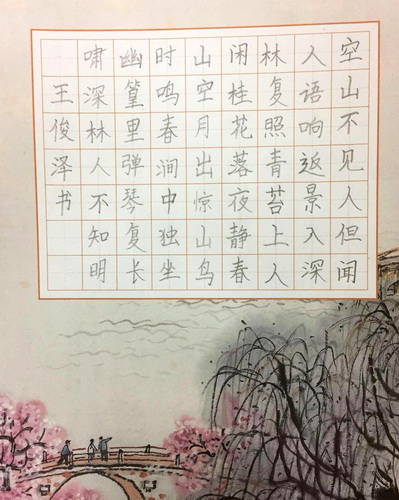 空山不见人但闻
人语响返景入深
林复照青苔上人
闲桂花落夜静春
山空月出惊山鸟
时鸣春涧中独坐
幽篁里弹琴复长
啸深林人不知明
王俊泽书